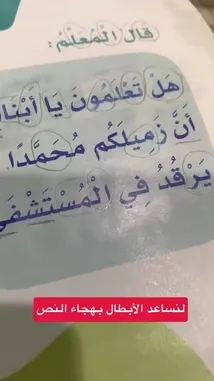 قَالَ الْمُعَلِّمُ :
هَلْ تَعْلَمُونَ يَا أَبْنَا
أَنَّ زَمِيلَكُم مُحَمَّدًا
يَرْقُدُ فِي الْمُسْتَشْفَى
لنساعد الأبطال بهجاء النص